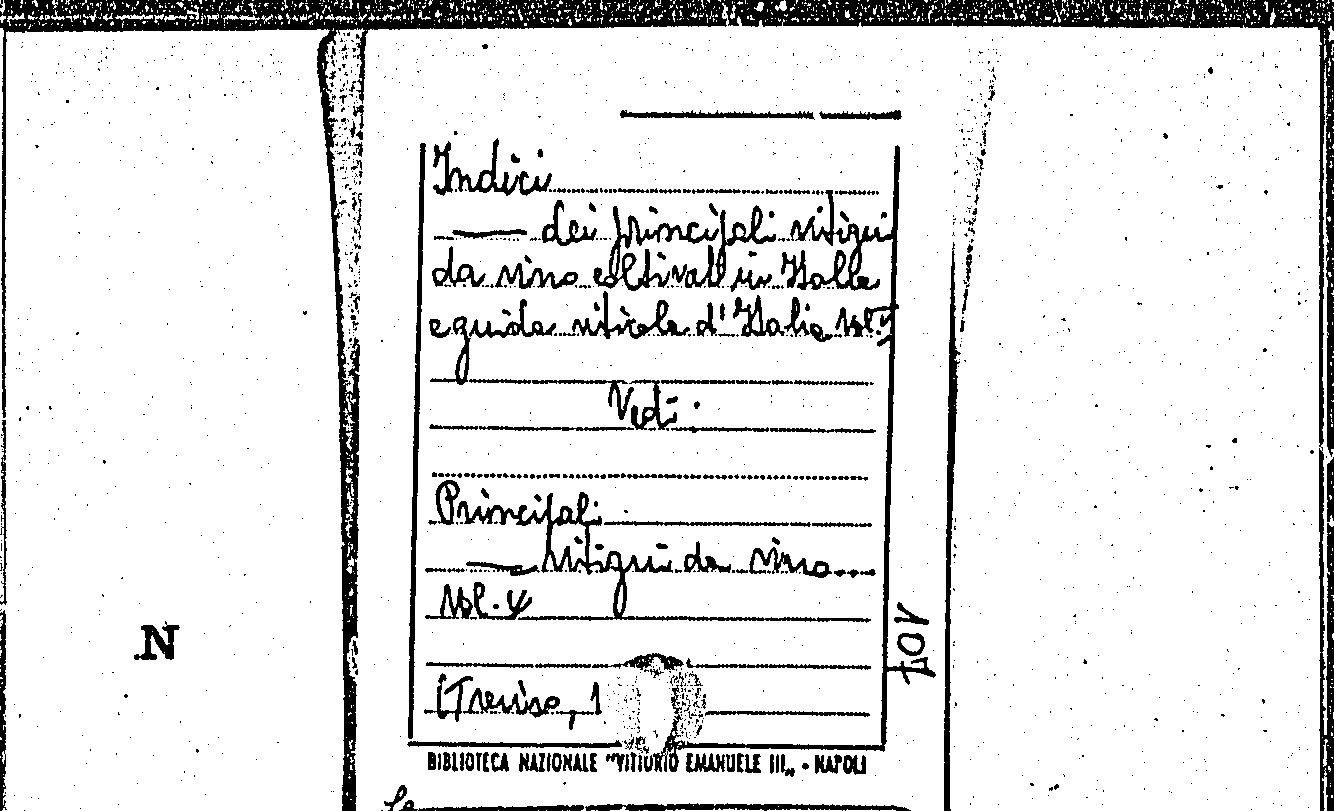 Indici
—— dei principali vitigni
da vino coltivati in Italia
e guida viticola d'Italia Vol. V
Vedi:
Principali
—— vitigni da vino...
Vol. V
(Treviso, 1
BIBLIOTECA NAZIONALE "VITTORIO EMANUELE III„ - NAPOLI
N
107